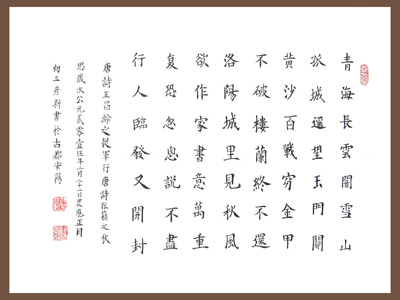 青海長雲闇雪山
孤城遥望玉門關
黄沙百戰穿金甲
不破樓蘭終不還
洛陽城里見秋風
欲作家書意萬重
复恐忽悤説不盡
行人臨發又開封
唐詩王昌齡之從軍行唐詩張籍之秋
思歲次公元貳零壹伍年二月二十一日農應正月
初三書於古都安陽